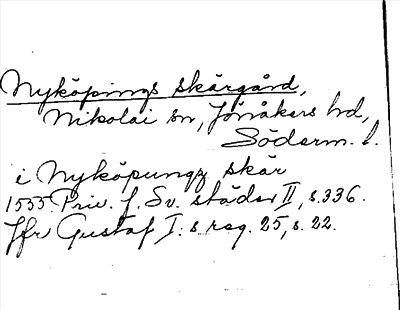 Nyköpings skärgård,
Nikolai sn, Jönåkers hd,
Söderm. l.
i Nyköpungz skär
1555 Priv. f. Sv. städer II, s. 336.
Jfr Gustaf I:s reg. 25, s. 22.